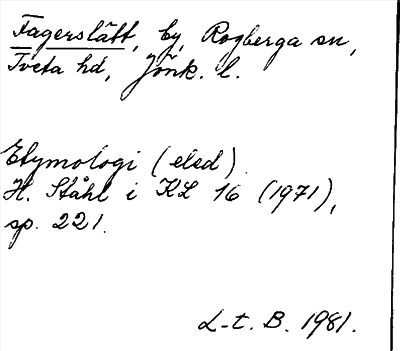 Fagerslätt, by, Rogberga sn,
Tveta hd, Jönk. l.
Etymologi (eled).
H. Ståhl i KL 16 (1971),
sp. 221.
L-t. B. 1981.